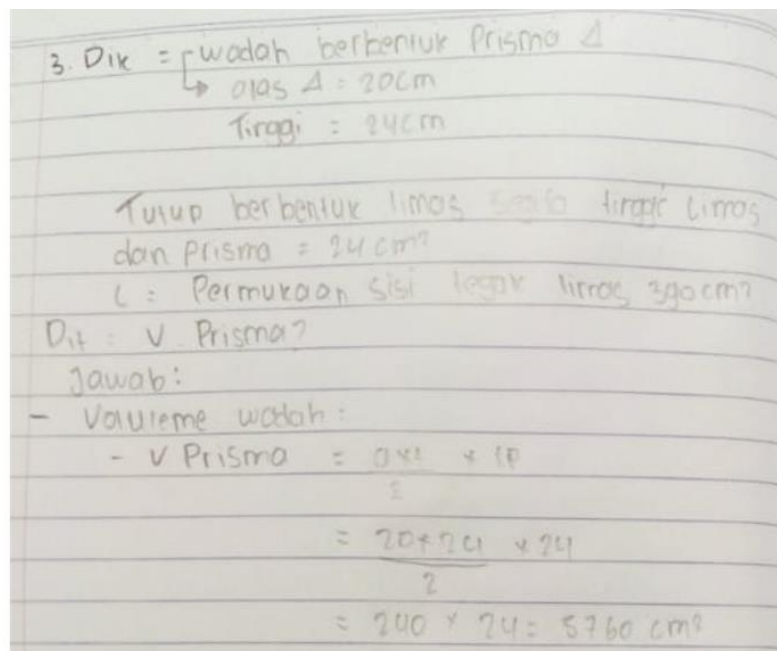 3. Dik = wadah berbentuk Prisma Δ
↳ alas Δ = 20cm
Tinggi = 24cm
Tutup berbentuk limas tinggi limas
dan prisma = 24 cm²
L = Permukaan sisi tegak limas 390cm²
Dit = V Prisma?
Jawab:
- Vouleme wadah:
- V Prisma = a×t × tp
2
= 20×24 × 24
2
= 240 × 24 = 5760 cm²